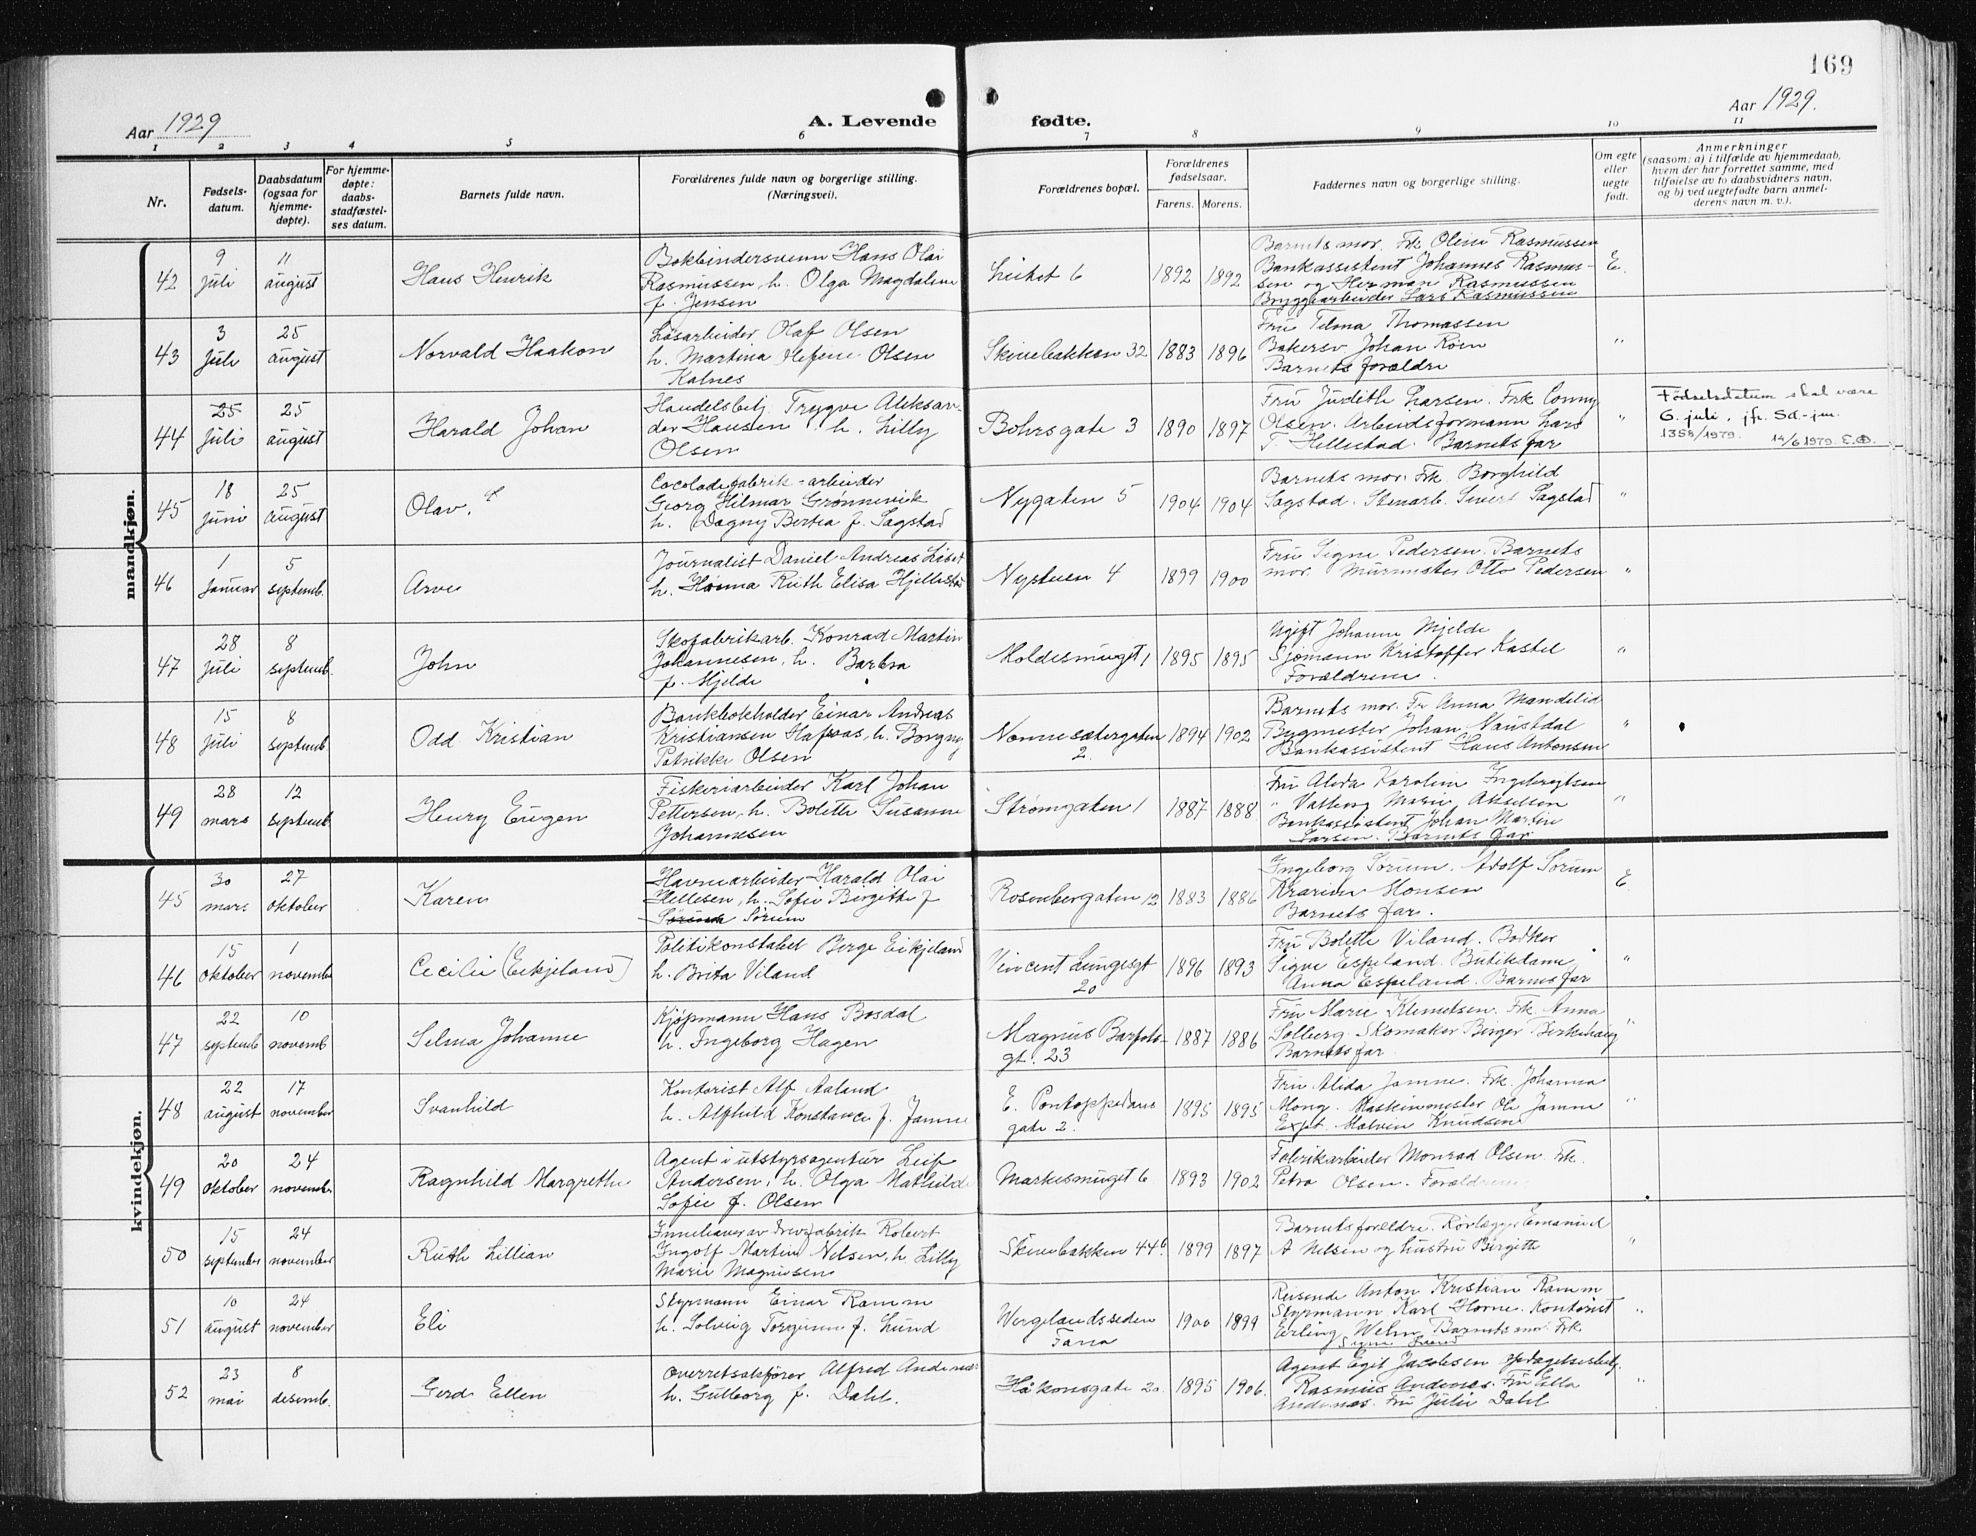 169
Aar 1929
A. Levende fødte.
Aar 1929.
1 2 3 4 5 6 7 8 9 10 11
Nr.
Fødsels-
datum.
Daabsdatum
(ogsaa for
hjemme-
døpte).
For hjemme-
døpte:
daabs-
stadfæstel-
ses datum.
Barnets fulde navn.
Forældrenes fulde navn og borgerlige stilling.
(Næringsvei).
Forældrenes bopæl.
Forældrenes
fødselsaar.
Farens. Morens.
Faddernes navn og borgerlige stilling.
Om egte
eller
uegte
født.
Anmerkninger
(saasom: a) i tilfælde av hjemmedaab,
hvem der har forrettet samme, med
tilføielse av to daabsvidners navn,
og b) ved uegtefødte barn anmel-
derens navn m. v.).
mandkjøn.
42
9
juli
11
august
Hans Henrik
Bokbindersvenn Hans Olai
Rasmussen, h. Olga Magdalene
f. Jensen
1892 1892
Barnets mor. Frk Oline Rasmussen
Bankassistent Johannes Rasmus-
sen og Herman Rasmussen
Bryggearbeider Lars Rasmussen
E.
43
3
juli
25
august
Norvald Haakon
Løsarbeider Olaf Olsen
h. Martina Olsen
Kalnes
Skivebakken 32
1883 1896
Fru Telma Thomassen
Johan Röen
Barnets forældre
"
44
25
juli
25
august
Harald Johan
Handelsbetj. Trygve Aleksan-
der Hansen h. Lilly
Olsen
Bohrsgate 3
1890 1897
Fru Judith Larsen. Frk Conny
Olsen. Arbeidsformann Lars
T. Hellestad. Barnets far
"
Fødselsdatum skal være
6. juli, jfr. Sd-jnr.
1358/1979. 14/6 1979.
45
18
juni
25
august
Olav.
Cocoladefabrik-arbeider
Georg Hilmar Grønnevick
h. Dagny Bertea f. Sagstad
Nygaten 5
1904 1904
Barnets mor. Frk. Borghild
Sagstad. Stenarb. Sivert Sagstad
"
46
1
januar
5
septemb.
Arve
Journalist Daniel Andreas
h. Ruth Elisa
Nystuen 4
1899 1900
Fru Signe Pedersen. Barnets
mor. Murmester Otto Pedersen
"
47
28
juli
8
septemb.
John
Skofabrikarb. Konrad Martin
Johannesen, h. Barbra
f. Mjelde
Holdesmuget 1
1895 1895
Ugift Johanne Mjelde
Sjømann Kristoffer Kastel
Forældrene.
"
48
15
juli
8
septemb
Odd Kristian
Bankbokholder Einar Andreas
Kristiansen h. Borgny
Patrikke Olsen
Nonnesætergaten
2.
1894 1902
Barnets mor. Fr Anna Mandelid
Bygmester Johan Naustdal
Bankassistent Hans Antonsen
"
49
28
mars
12
septemb.
Henry Eugen
Fiskeriarbeider Karl Johan
Pettersen, h. Bolette Susanne
Johannesen
Strømgaten 1
1887 1888
Fru Alida Karoline Ingebregtsen
" Valborg Marie Akselsen
Bankassistent Johan Martin
Larsen. Barnets far
"
kvindekjøn.
45
30
mars
27
oktober
Karen
Havnearbeider Harald Olai
Hellesen, h. Sofie Birgitte f
Sørum
Rosenbergaten 12
1883 1886
Ingeborg Sørum. Adolf Sørum
Monsen
Barnets far.
E.
46
15
oktober
1
novembe
Cecilie (Eikjeland)
Politikonstabel Berge Eikjeland
h. Brita Viland
Vincent Lungesgt
20
1896 1893
Fru Bolette Viland. Bødker
Sigve Espeland. Butikdame
Anna Espeland. Barnets far
"
47
22
septemb
10
novemb
Selma Johanne
Kjøpmann Hans Bosdal
h. Ingeborg Hagen
Magnus Barfots-
gt. 23
1887 1886
Fru Marie Klemetsen. Frk. Anna
Solberg. Skomaker Birger Birkehaug
Barnets far.
"
48
22
august
17
november
Svanhild
Kontorist Alf Aaland
h. Alfhild Konstance f. Jamne
E. Pontoppidans
gate 2.
1895 1895
Fru Alida Jamne. Frk. Johanna
Mong. Maskinmester Ole Jamne
Expt. Malvin Knudsen
"
49
20
oktober
24
november
Ragnhild Margrethe
Agent i utstyrsagentur Leif
Andersen, h. Olga Mathilde
Sofie f. Olsen
Markesmuget 6
1893 1902
Fabrikarbeider Monrad Olsen. Frk.
Petra Olsen. Forældrene.
50
15
september
24
november
Ruth Lillian
Robert
Ingolf Martin Nelsen, h. Lilly
Marie Magnusen
Skivebakken 44b.
1899 1897
Barnets forældre. Rørlægger Emanuel
A Nelsen og hustru Birgitte
"
51
10
august
24
november
Eli
Styrmann Einar Ramm
h. Solveig Torgunn f. Lund
Wergelandsveden
Fana
1900 1899
Reisende Anton Kristian Ramm
Styrmann Karl Horne. Kontorist
Erling Welm Barnets mor. Frk
Lund
"
52
23
mai
8
desemb.
Gerd Ellen
Overretssakfører Alfred Andenæs
h. Gulborg f. Dahl.
Håkonsgate 20.
1895 1906.
Agent Egil Jacobsen opdagelsesbetj.
Rasmus Andenæs. Fru Ella
Andenæs. Fru Julie Dahl
"